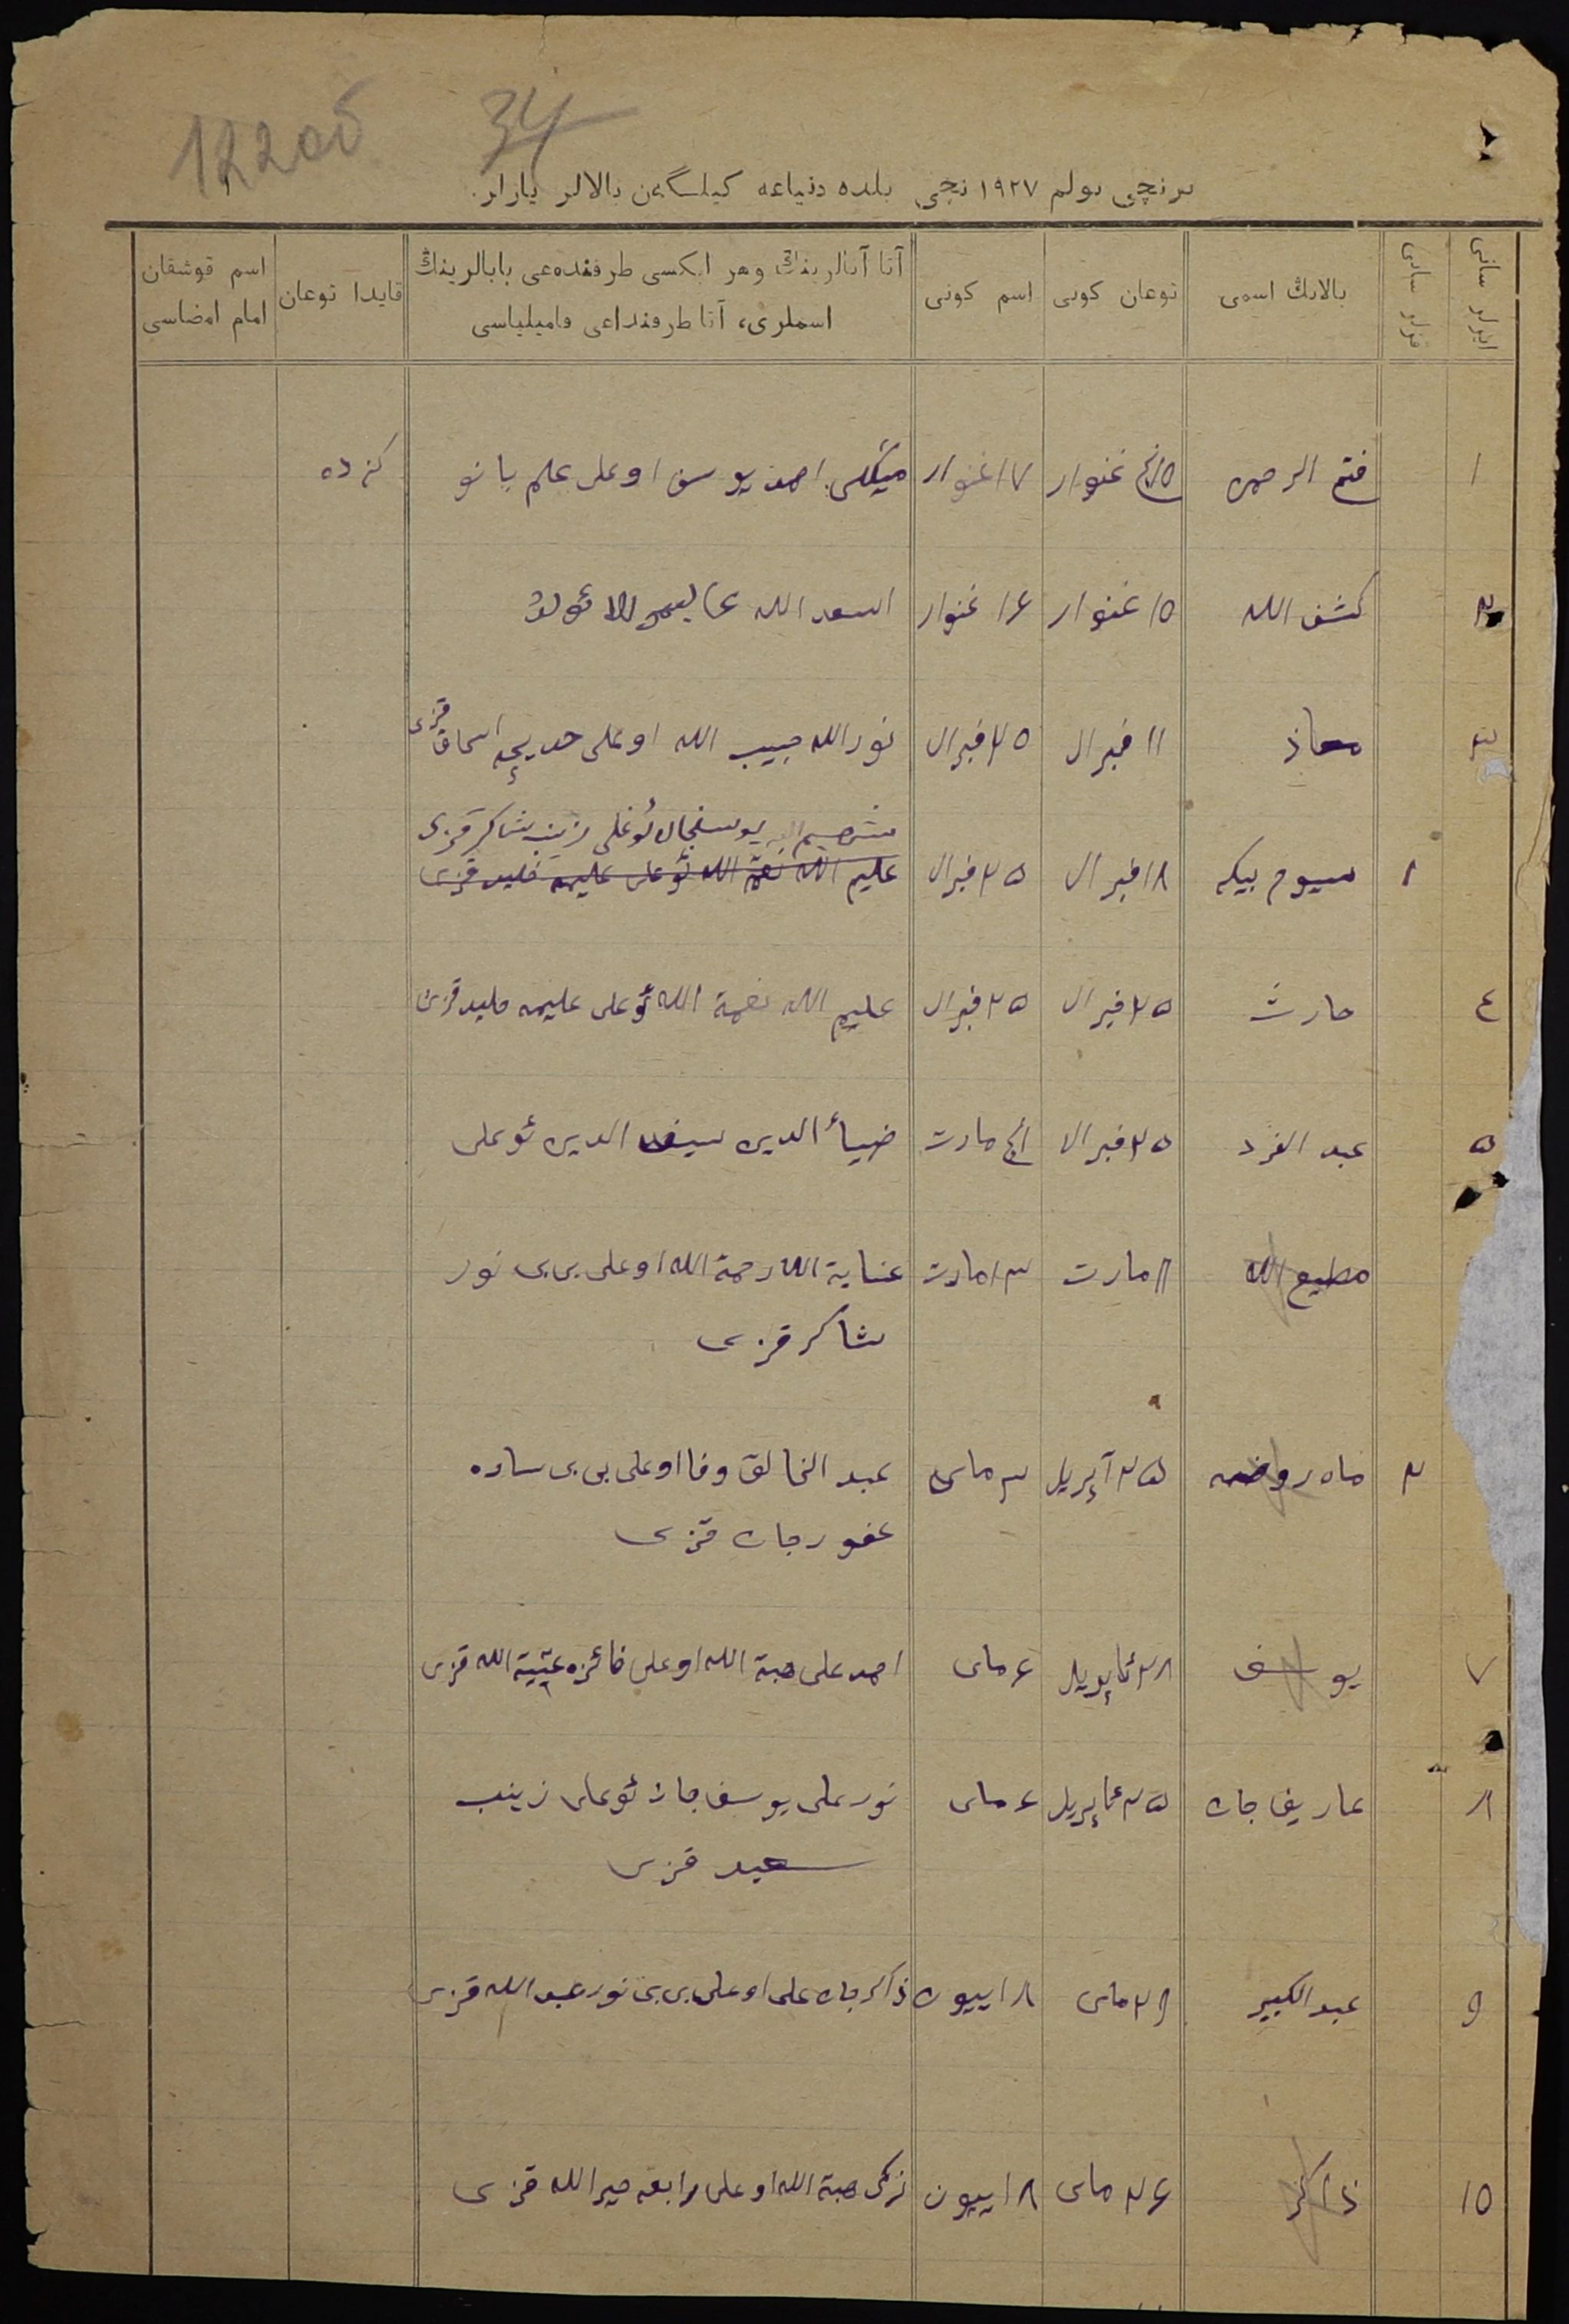 122об
34
برنچی بولم ١٩٢٧ نچی یلده دنیاعه کیلگەن بالالر یازلر.
ایرلر سانی
قزلر سانی
بالانڭ اسمی
توعان کونی
اسم کونی
آتا آنالرینڭ وهر ایکسی طرفندەعی بابالرینڭ
اسملری، آتا طرفنداعی فامیلیاسی
قایدا توعان
اسم قوشقان
امام امضاسی
١ فتح الرحمن ١٥ غنوار ١٧ غنوار احمد یوسف اوغلی علم بانو
٢ کشف الله ١٥ غنوار ١٦ غنوار اسعد الله
٣ معاذ ١١ فبرال ٢٥ فبرال نورالله حبیب الله اوغلی خدیجه اسحاق قزی
یوسفجان ئوغلی زینب شاکر قزی
١ سیوم بیکه ١٨ فبرال ٢٥ فبرال علیم الله نعمة الله ئوغلی علیمه خلید قزی
٤ حارث ٢٥ فبرال ٢٥ فبرال علیم الله نعمة الله ئوغلی علیمه خلید قزی
٥ عبد الفرد ٢٥ فبرال مارت ضیأ الدین سیف الدین ئوغلی
مطیع الله ١١ مارت ١٣ مارت عنایة الله رحمة الله اوغلی بی بی نور
شاکر قزی
٢ ماه روضه ٢٥ آپریل ٣ مای عبد الخالق وفا اوغلی بی بی ساره
غفورجان قزی
٧ یوسف ٢٨ ئاپریل ٦ مای احمد علی هبة الله اوغلی فائزه الله قزی
٨ عاریف جان ٢٥ ئاپریل ٦ مای نور علی یوسف جان ئوغلی زینب
سعید قزی
٩ عبد الکبیر ٢٩ مای ٨ اییون ذاکرجان علی اوغلی بی بی نور عبد الله قزی
١٥ ذاکر ٢٦ مای ٨ اییون زکی هبة الله اوغلی رابعه خیر الله قزی